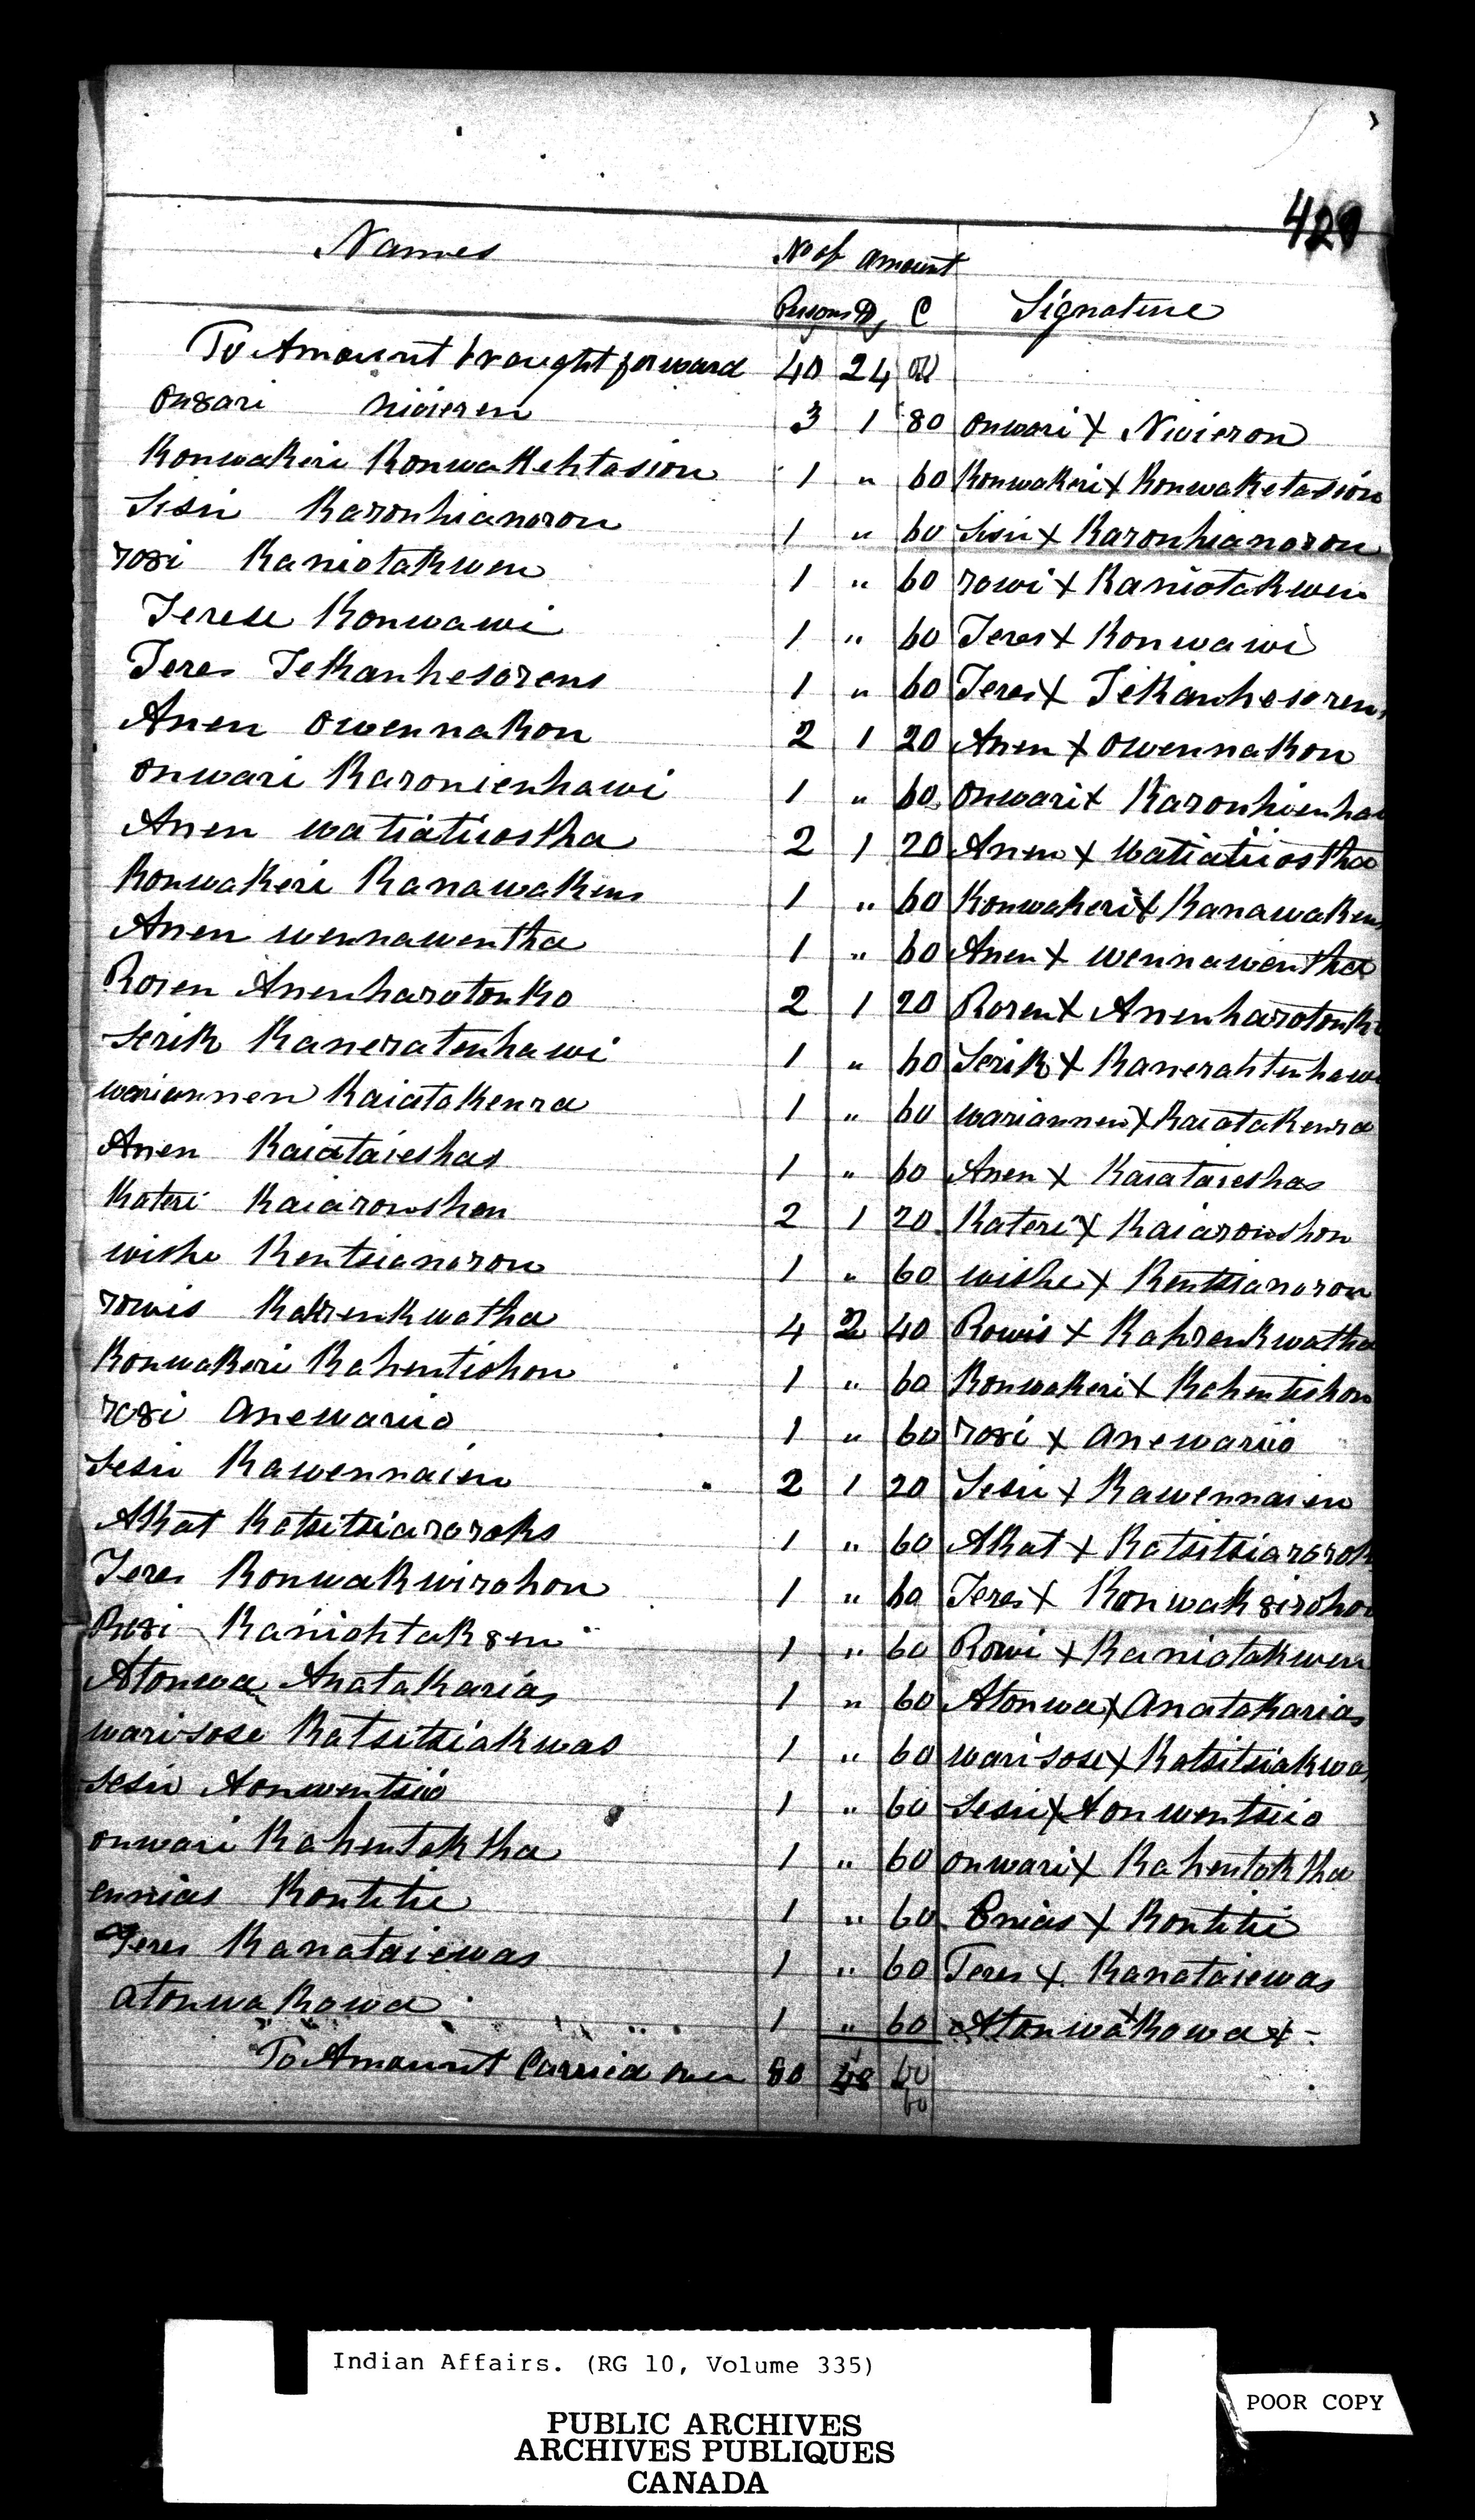 420
Names No of amount
Persons D, C Signature
To Amount brought forward 40 24 00
On8ari Niöieren 3 1 80 Onwari X Nivieron
Konwakeri Konwakehtasion 1 " 60 Konwakeri X Konwaketasion
Sisii Karonhianoron 1 " 60 Sisii X Karonhianoron
ro8i Kaniotakwen 1 " 60 rowi X Kaniotakwen
Terese Konwawi 1 " 60 Teres X Konwawi
Teres Tekanhesorens 1 " 60 Teres X Tekanhesorens
Anen Owennakon 2 1 20 Anen X Owennakon
Onwari Karonienhawi 1 " 60 Onwari X Karonhienha
Anen watiatiiostha 2 1 20 Anen X Watiatiiostha
Konwakeri Kanawakens 1 " 60 Konwakeri X Kanawakens
Anen wennawentha 1 " 60 Anen X wennawentha
Roren Anenharotonko 2 1 20 Roren X Anenharotonko
Serik Kaneratenhawi 1 " 60 Serik X Kanerahtenhawi
wariannen Kaiatakenra 1 " 60 wariannen X Kaiatakenra
Anen Kaiataieshas 1 " 60 Anen X Kaiataieshas
Kateri Kaiaronshon 2 1 20 Kateri X Kaiaronshon
wishe Kentsianoron 1 " 60 wishe X Kentsianoron
rowis Kahrenkwatha 4 2 40 Rowis X Kahrenkwatha
Konwakeri Kahentishon 1 " 60 Konwakeri X Kahentishon
ro8i anewariio 1 " 60 ro8i X anewariio
Sesii Kawennaien 2 1 20 Sesii X Kawennaien
Akat Katsitsiaroroks 1 " 60 Akat X Katsitsiarorok
Teres Konwakwirohon 1 " 60 Teres X Konwak8irohon
Ro8i Kaniohtak8en 1 " 60 Rowi X Kaniotakwen
Atonwa Anatakarias 1 " 60 Atonwa X Anatakarias
warisose Katsitsiakwas 1 " 60 warisose X Katsitsiakwas
Sesii Aonwentsiio 1 " 60 Sesii X Aonwentsiio
onwari Kahentaktha 1 " 60 onwari X Kahentaktha
ennias Kontitie 1 " 60 Enias X Kontitie
Teres Kanataiewas 1 " 60 Teres X Kanataiewas
atonwa Kowa 1 " 60 Atonwa X Kowa X -
To Amount Carried over 80 48 60
60
Indian Affairs. (RG 10, Volume 335)
PUBLIC ARCHIVES
ARCHIVES PUBLIQUES
CANADA
POOR COPY